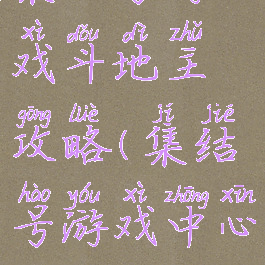 xì dòu dì zhǔ
戏斗地主
gōng lüè jí jié
攻略(集结
hào yóu xì zhōng xīn
号游戏中心